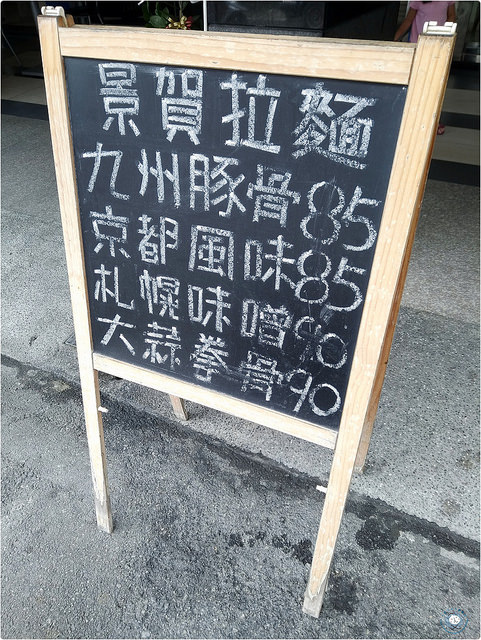 景賀拉麵
九州豚骨85
京都風味85
札幌味噌90
大蒜拳骨90